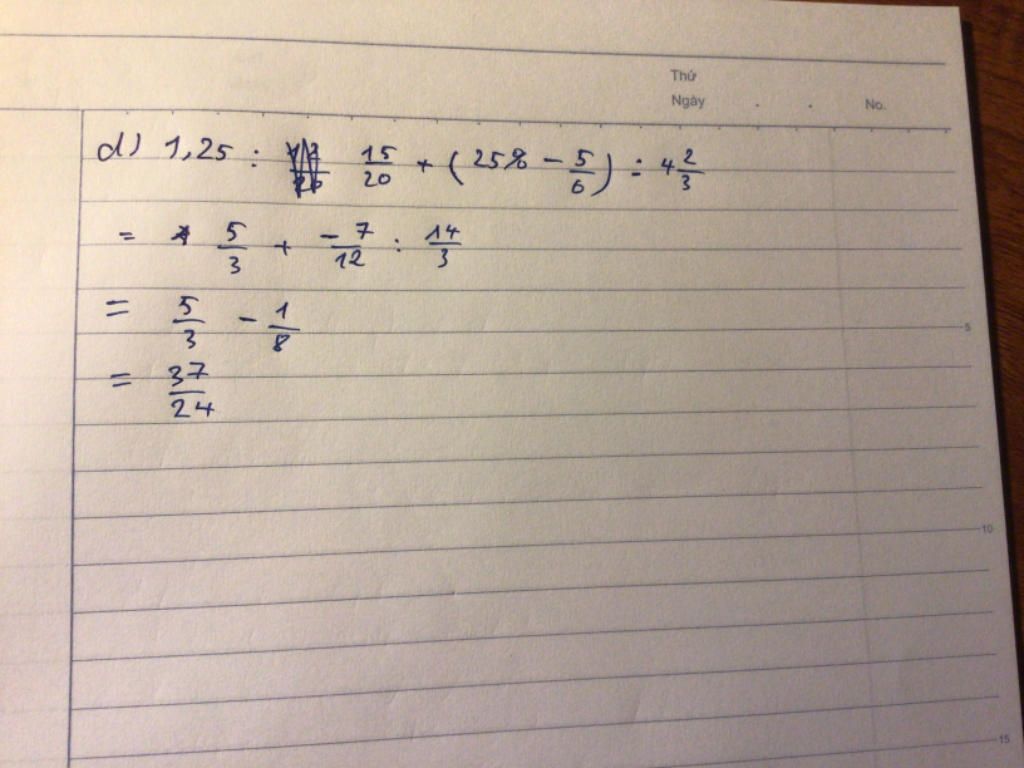 Thứ
Ngày . . No.
d) 1,25 : 15/20 + (25% - 5/6) : 4 2/3
= 5/3 + -7/12 : 14/3
= 5/3 - 1/8
= 37/24
5
10
15